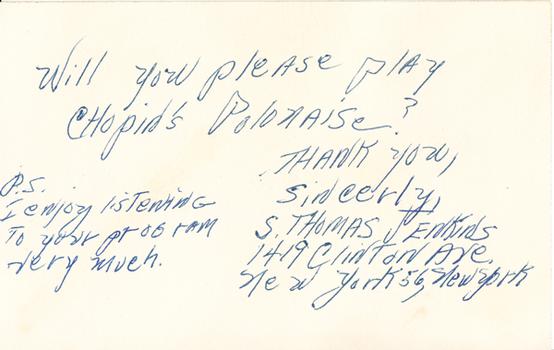 Will you please play
CHopin's Polonaise?
THANK you,
Sincerly,
S. THOMAS JENKINS
1419 CLINTON Ave.
New York 56, New York
P.S.
I enjoy listening
To your program
very much.